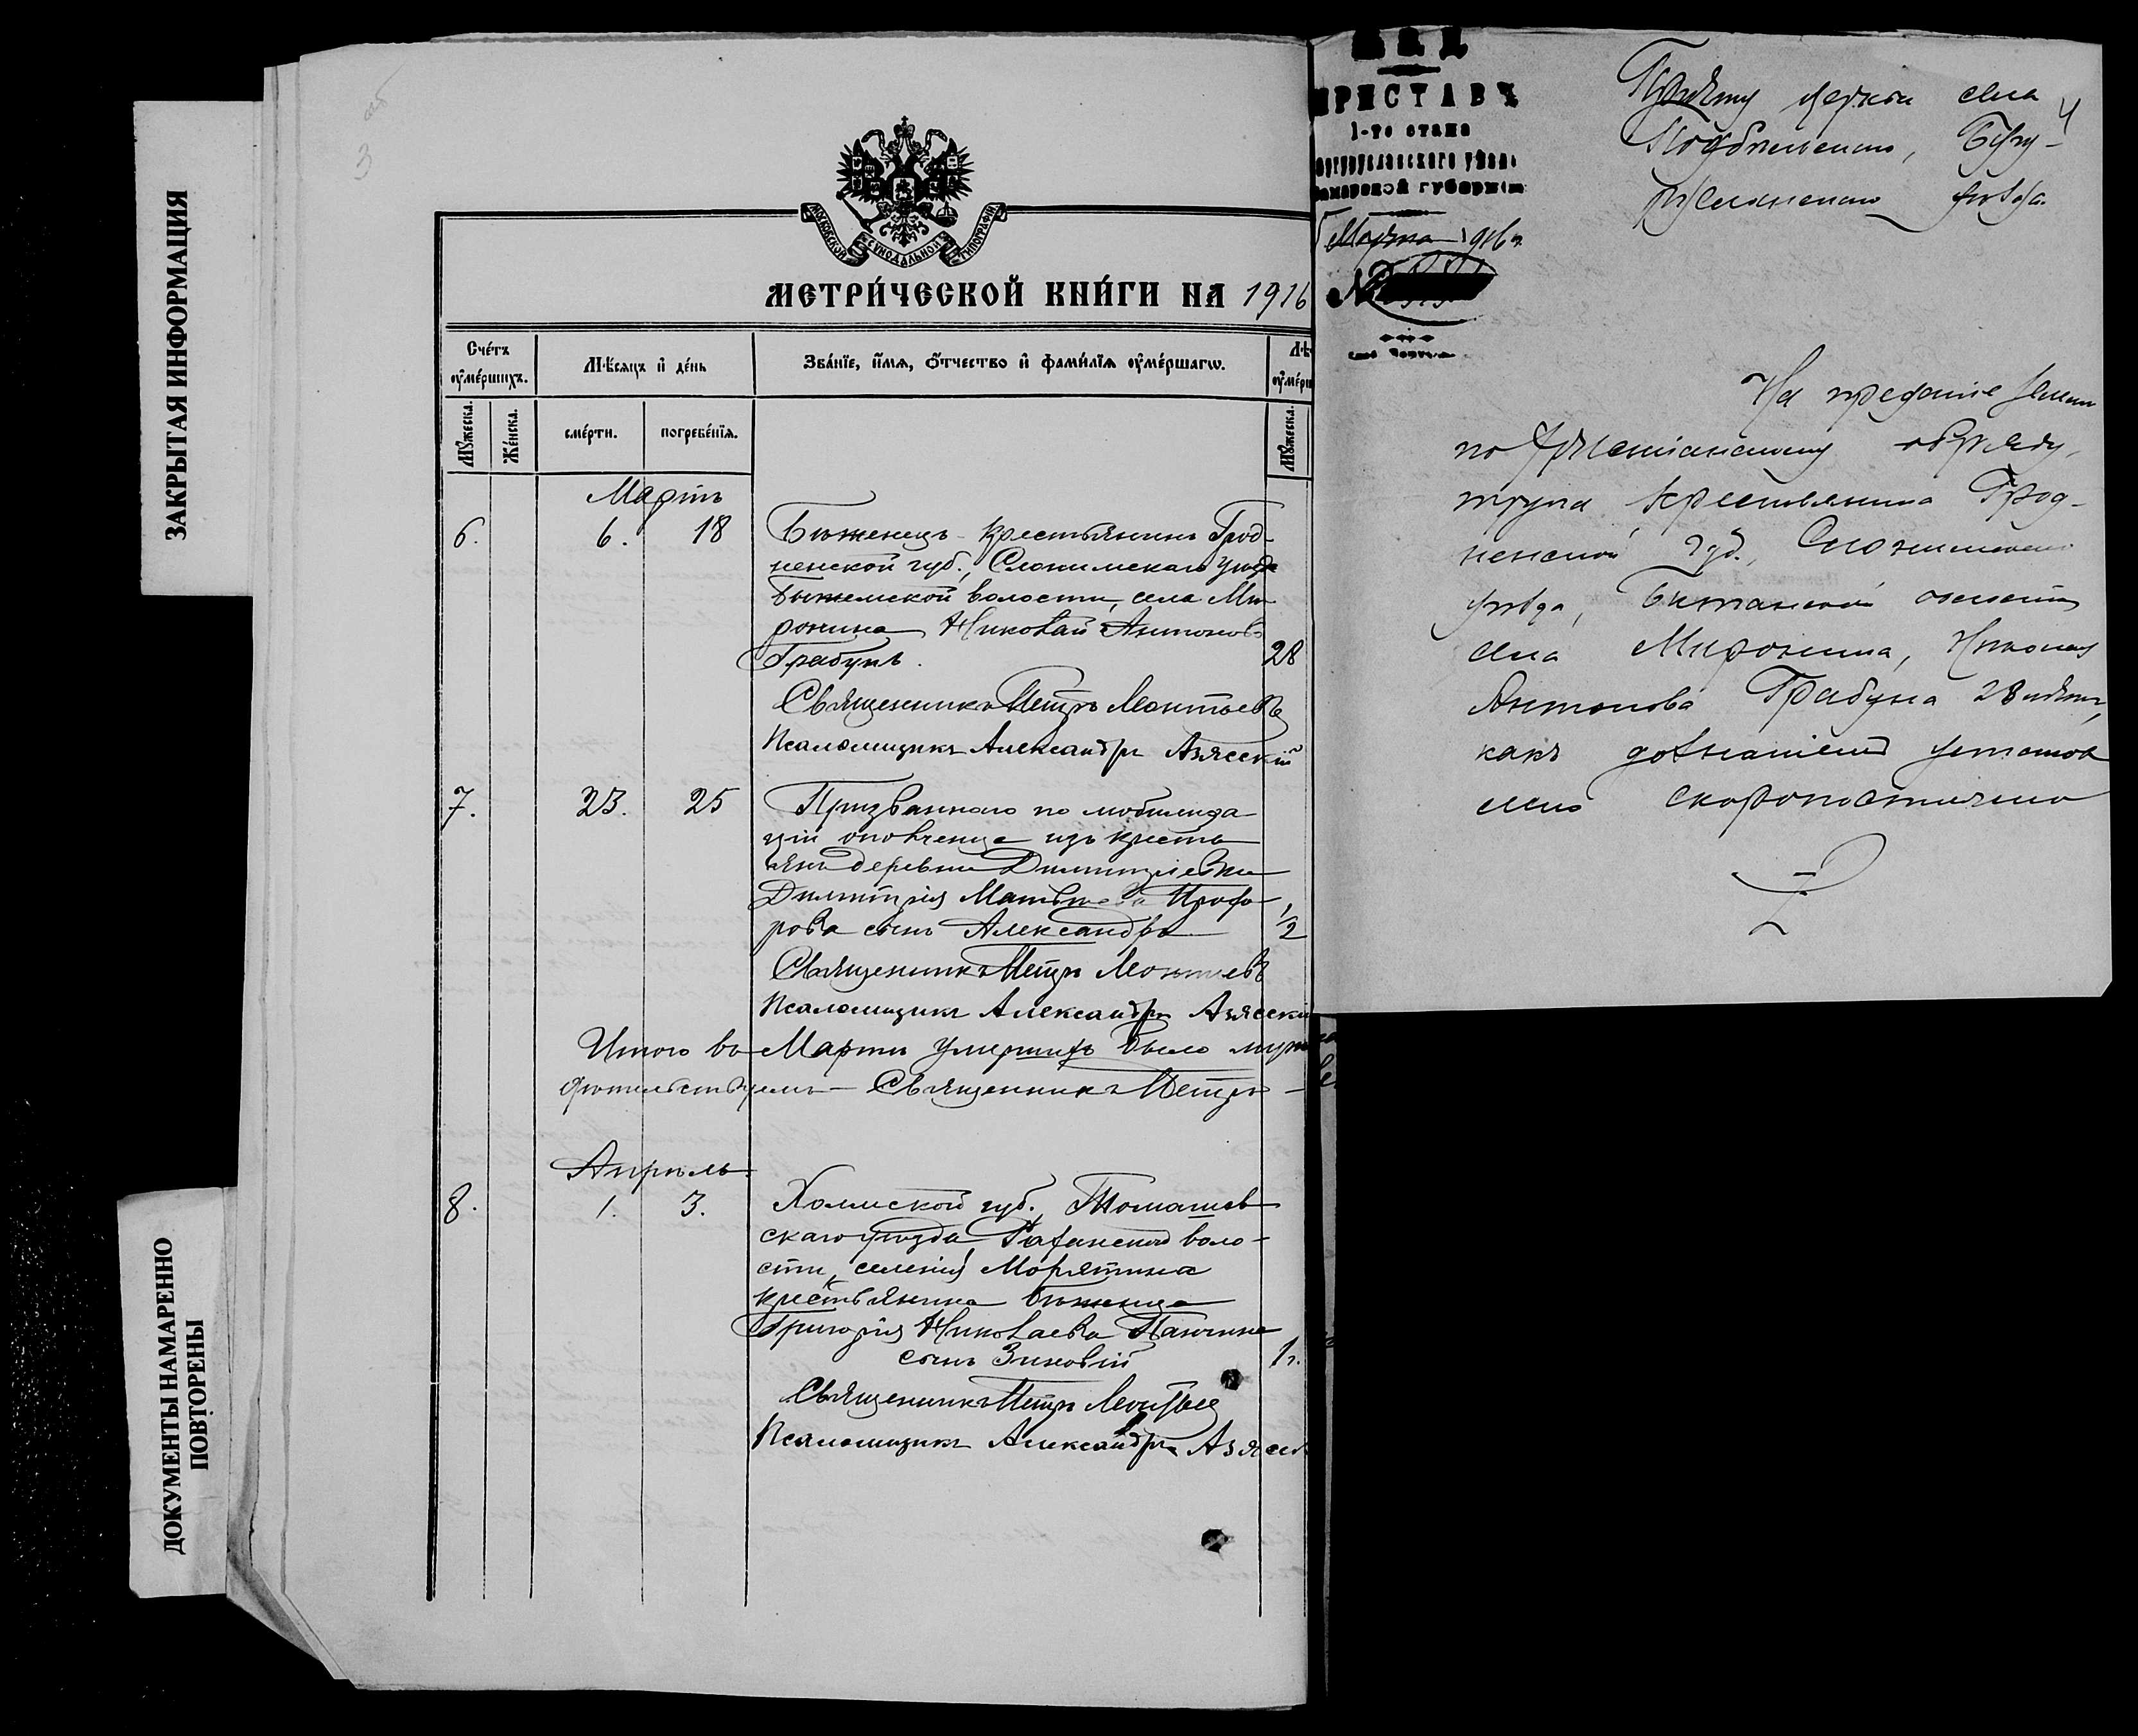 ЗАКРЫТАЯ ИНФОРМАЦИЯ
ДОКУМЕНТЫ НАМАРЕННО
ПОВТОРЕНЫ
3
МОСКОВСКОЙ СѴНОДАЛЬНОЙ ТИПОГРАФІИ
МЕТРИ́ЧЕСКОЙ КНИ́ГИ НА 1916
Сче́тъ ᲂу҆ме́ршихъ.
Мѣ́сяцъ и҆ де́нь
Зва́нїе, и҆́мя, ѻ҆́тчество и҆ фами́лїя ᲂу҆ме́ршагѡ.
Лѣ
ᲂу҆ме́рш
Мꙋ́жеска.
Же́нска.
сме́рти.
погребе́нїя.
Мꙋ́жеска.
Мартъ
6. 6. 18 Бѣженецъ крестьянинъ Грод-
ненской губ., Слонимскаго уѣзда
волости, села Ми-
ронина Николай Антоновъ
Грабунъ. 28
Священникъ Петръ Леонтьевъ
Псаломщикъ Александръ Азясскій
7. 23. 25 Призваннаго по мобилиза
ціи ополченца изъ кресть
янъ деревни Димитріевки
Димитрія Матвѣева Прохо
рова сынъ Александръ 1/2
Священникъ Петръ Леонтьевъ
Псаломщикъ Александръ Азясскі
Итого въ Мартѣ умершихъ было муж
Священникъ Петръ
Апрѣль.
8. 1. 3. Холмской губ., Томашев
скаго уѣзда, волo-
сти, селенія Морятина
крестьянина бѣженца
Григорія Николаева
сынъ Зиновій 1 г.
Священникъ Петръ Леонтьев
Псаломщикъ Александръ Азясск
ПРИСТАВЪ
1-го стана
Бугурусланскаго уѣзд.
Самарской губерніи
Марта 1916 г.
№
Причту церкви села
4
Бугу-
русланскаго уѣзда.
На преданіе земли
по христіанскому обряду,
трупа крестьянина Грод-
ненской губ., Слонимскаго
уѣзда, Бытанской волости
села Миронина, Николая
Антонова Грабуна 28 лѣтъ,
какъ дознаніемъ установ
лено скоропостижно